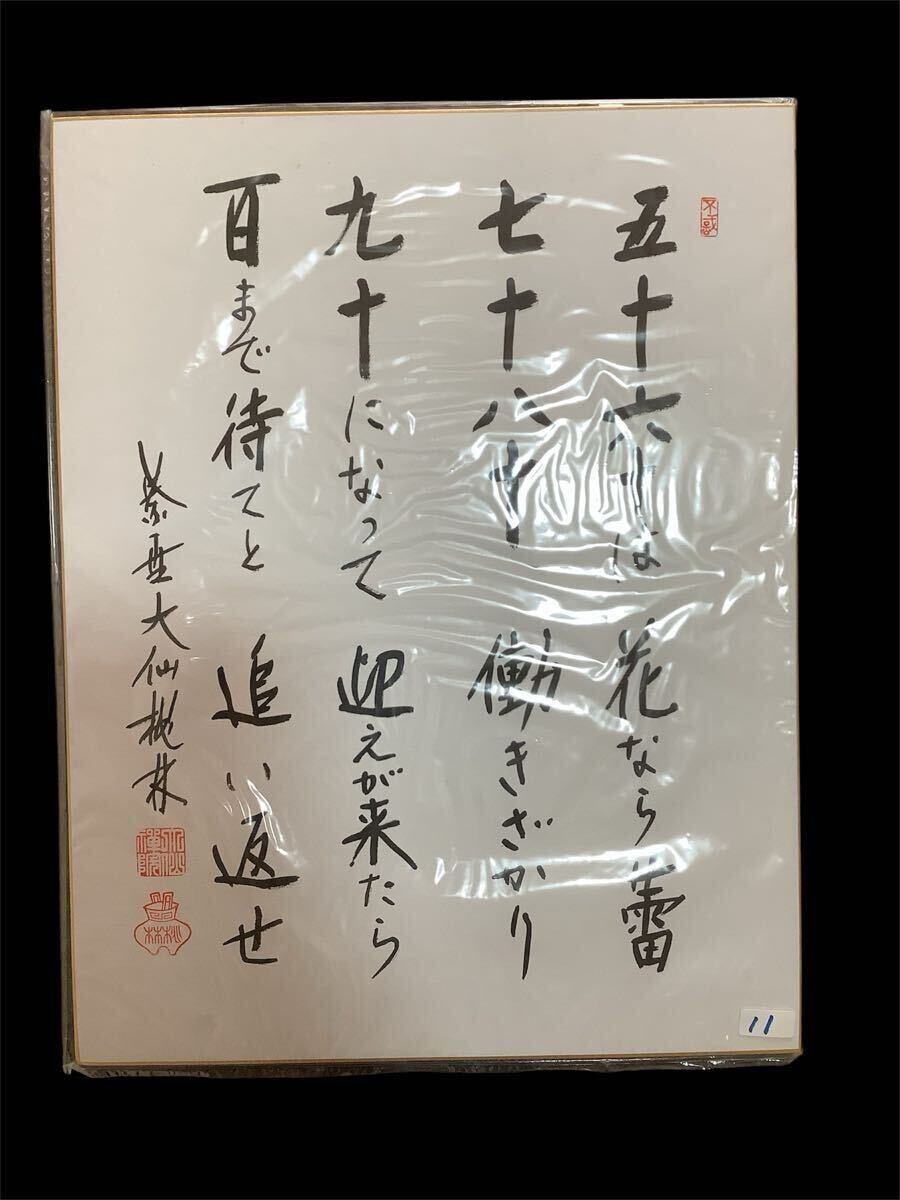 不惑
五十六十は 花なら蕾
七十八十 働きざかり
九十になって 迎えが来たら
百まで待てと 追い返せ
紫野大仙桃林
桃林
11